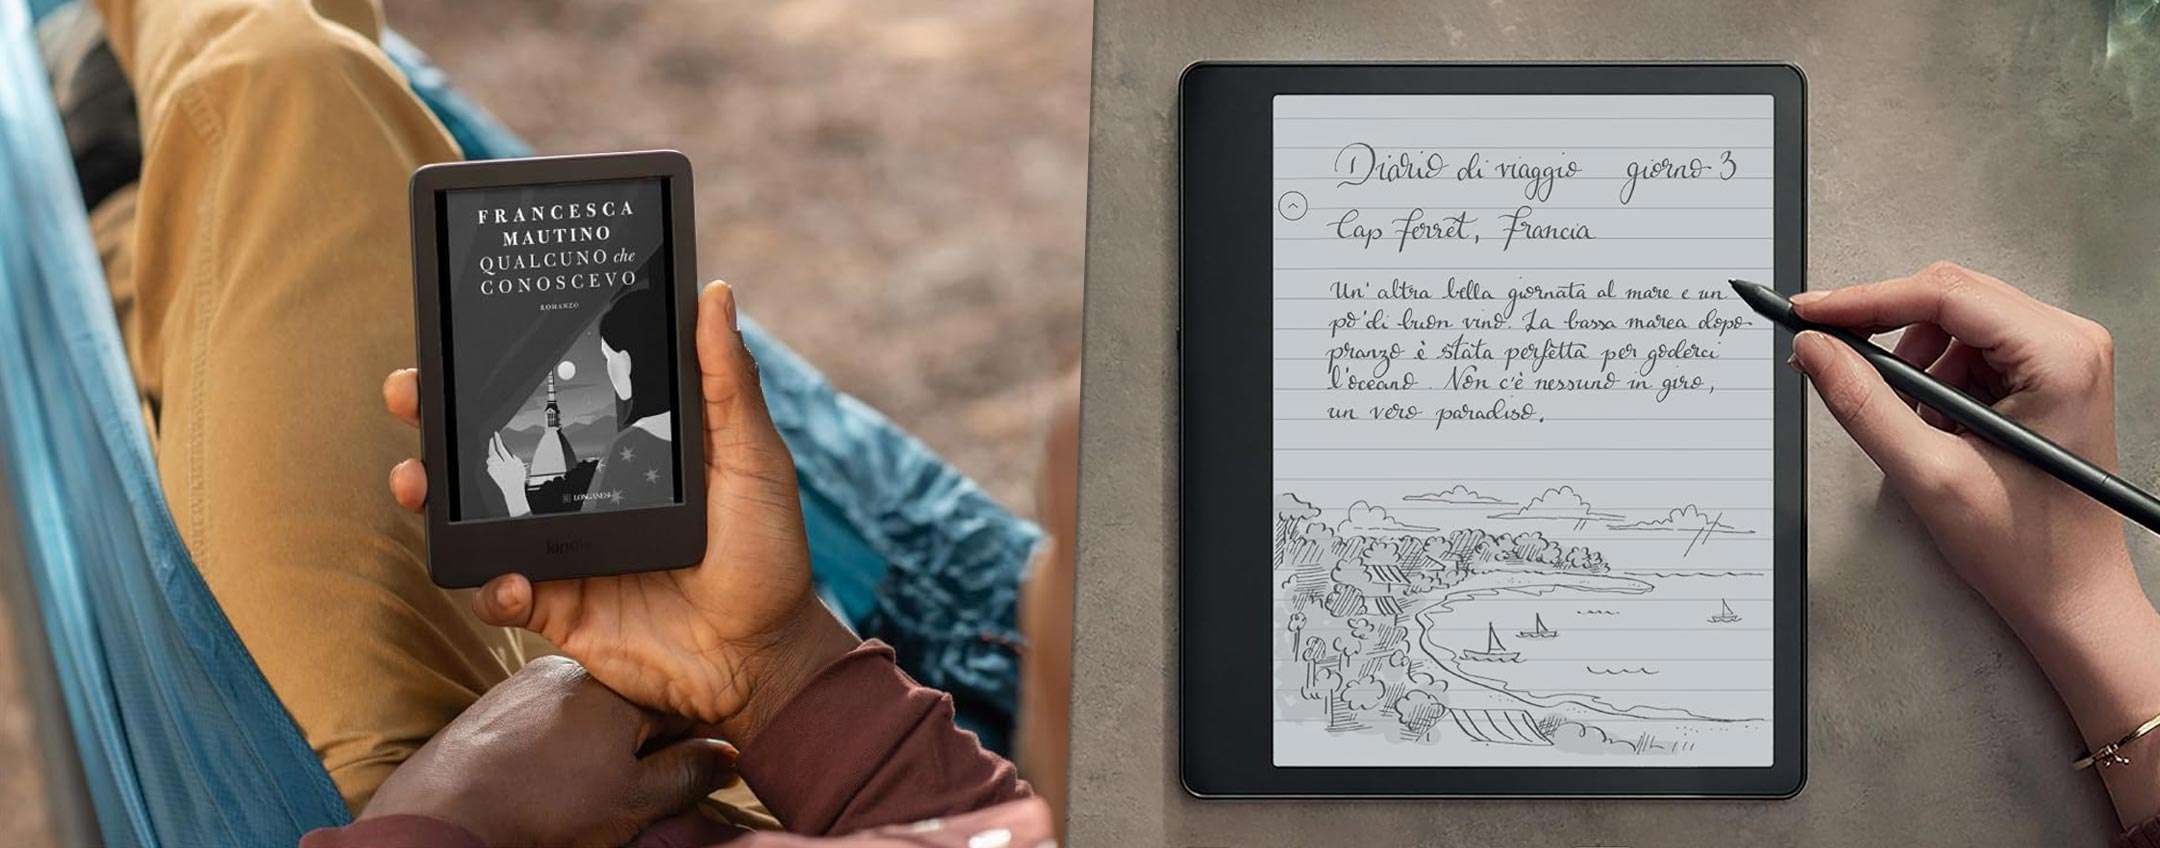 FRANCESCA
MAUTINO
QUALCUNO che
CONOSCEVO
ROMANZO
LONGANESI
kindle
Diario di viaggio giorno 3
Cap Ferret, Francia
Un'altra bella giornata al mare e un
po' di buon vino. La bassa marea dopo
pranzo è stata perfetta per goderci
l'oceano. Non c'è nessuno in giro,
un vero paradiso.